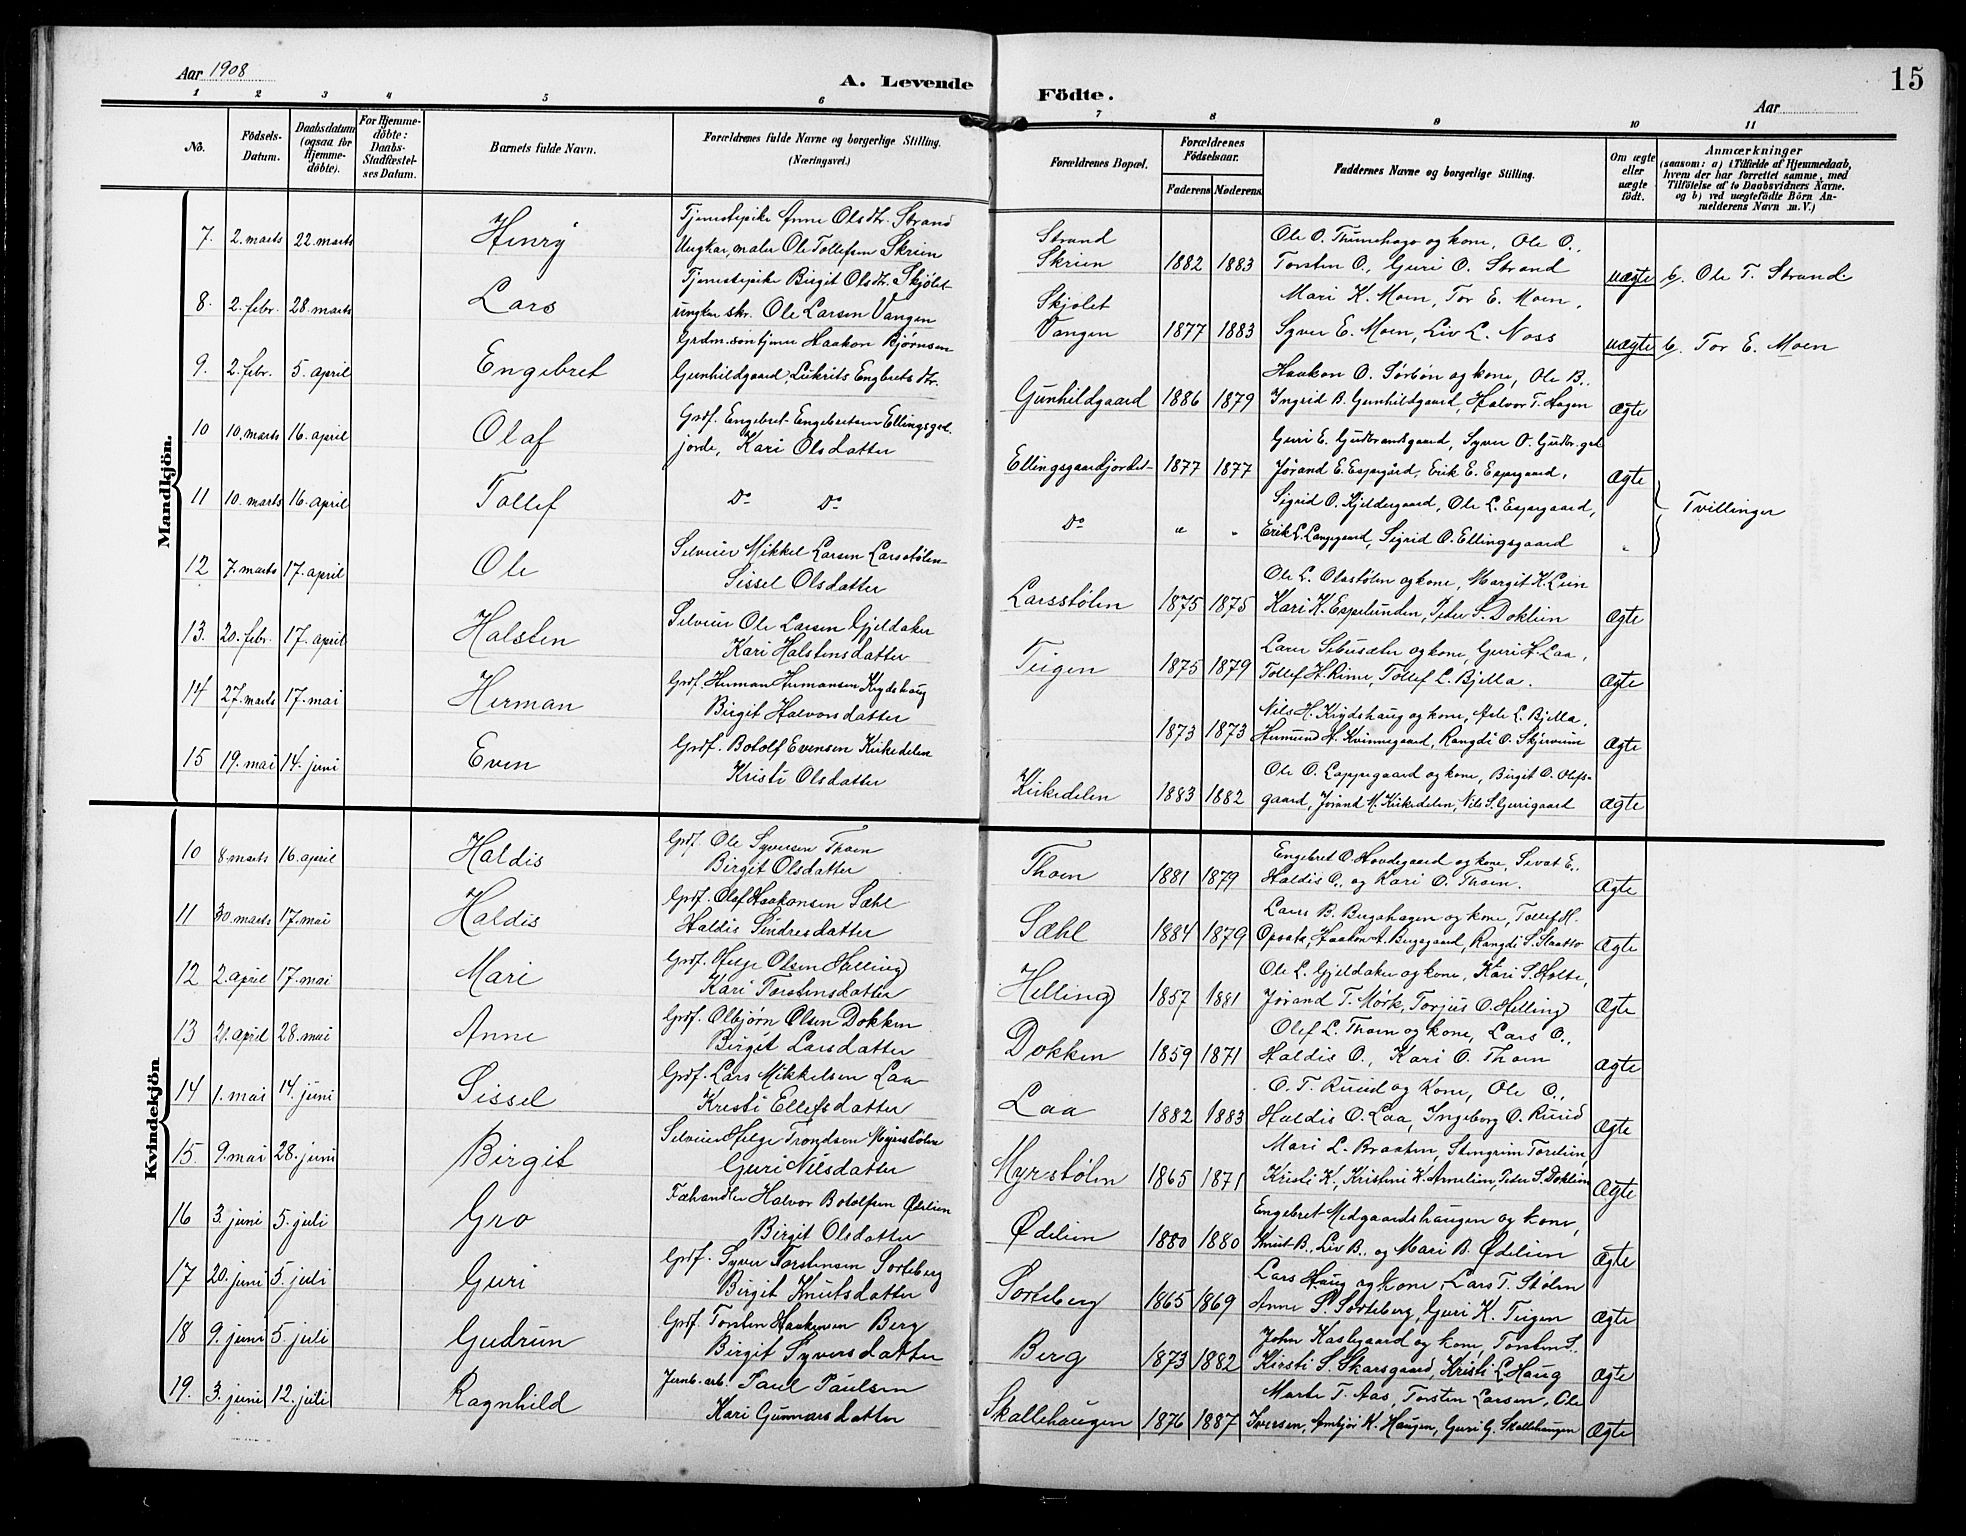 Aar 1908
A. Levende
Födte.
Aar
15
1 2 3 4 5 6 7 8 9 10 11
No.
Födsels-
Datum.
Daabsdatum
(ogsaa for
Hjemme-
döbte).
For Hjemme-
döbte:
Daabs-
Stadfæstel-
ses Datum.
Barnets fulde Navn.
Forældrenes fulde Navne og borgerlige Stilling.
(Næringsvei.)
Forældrenes Bopæl.
Forældrenes
Födselsaar.
Faderens Moderens
Faddernes Navne og borgerlige Stilling.
Om ægte
eller
uægte
födt.
Anmærkninger
(saasom: a) i Tilfælde af Hjemmedaab,
hvem der har forrettet samme, med
Tilföielse af to Daabsvidners Navne.
og b) ved uægtefödte Börn An-
melderens Navn m. V.)
Mandkjön.
7. 2. marts 22. marts Henry
Tjenestepike Anne Olsdtr. Strand
Ungkar, maler Ole Tollefsen Skrien
Strand
Skrien 1882 1883
Ole O. Thunehage og kone, Ole O.,
Torsten O., Guri O. Strand
uægte b. Ole T. Strand.
8. 2. febr. 28. marts Lars
Tjenestepike Birgit Olsdtr. Skjølet
ungkar skr. Ole Larsen Vangen
Skjølet
Vangen 1877 1883
Mari K. Moen, Tor E. Moen,
Syver E. Moen, Liv L. Noss
uægte b. Tor E. Moen
9. 2. febr. 5. april Engebret
Grdm.søn tjener Haakon Bjørnsen
Gunhildgaard, Liikrits Engbrets dtr.
Gunhildgaard 1886 1879
Haakon O. Sørbøn og kone, Ole B.,
Ingrid B. Gunhildgaard, Halvor T. Hagen
Ægte
10 10. marts 16. april Olaf
Grdf. Engebret Engebretsen Ellingsgd.
jorde, Kari Olsdatter
Ellingsgaardjordet 1877 1877
Guri E. Gudbrandsgaard, Syver O. Gudbr.gd
Jørand E. Espegård, Erik E. Espegaard,
Ægte
11 10. marts 16. april Tollef
Do Do
Do " "
Sigrid O. Kjeldergaard, Ole L. Espegaard,
Erik L. Langegaard, Sigrid O. Ellingsgaard
"
Tvillinger
12 7. marts 17. april Ole
Selveier Mikkel Larsen Larsstølen
Sissel Olsdatter
Larsstølen 1875 1875
Ole L. Olastølen og kone, Margit K. Lein
Kari K. Espelunden, Peder S. Doklien
Ægte
13. 20. febr. 17. april Halsten
Selveier Ole Larsen Gjeldaker
Kari Halstensdatter
Teigen 1875 1879
Lars Sebusæter og kone, Guri H. Laa,
Tollef H. Rime, Tollef L. Bjella.
Ægte
14 27. marts 17. mai Herman
Grdf. Herman Hermansen Krydshaug
Birgit Halvorsdatter
1873 1873
Nils H. Krydshaug og kone, Asle L. Bjella,
Hermund H. Kvinnegaard, Rangdi O. Skjervum
Ægte
15 19. mai 14. juni Even
Grdf. Botolf Evensen Kirkedelen
Kristi Olsdatter
Kirkedelen 1883 1882
Ole O. Lappegaard og kone, Birgit O. Olefs-
gaard, Jørand M. Kirkedelen, Nils S. Gurigaard
Ægte
Kvindekjön
10 8. marts 16. april Haldis
Grdf. Ole Syversen Thoen
Birgit Olsdatter
Thoen 1881 1879
Engebret O. Hovdegaard og kone, Sevat E.,
Haldis O., og Kari O. Thoen.
Ægte
11 30. marts 17. mai Haldis
Grdf. Olaf Haakonsen Sæhl
Haldis Sindresdatter
Sæhl 1884 1879
Lars B. Bergahagen og kone, Tollef H.
Opsata, Haakon A. Bergsgaard, Rangdi S. Slaatto
Ægte
12 2. april 17. mai Mari
Grdf. Helge Olsen Helling
Kari Torstensdatter
Helling 1857 1881
Ole L. Gjeldaker og kone, Kari S. Holte,
Jørand T. Mørk, Torjus O. Helling
Ægte
13 21. april 28. mai Anne
Grdf. Olbjørn Olsen Dokken
Birgit Larsdatter
Dokken 1859 1871
Olef L. Thoen og kone, Lars O.,
Haldis O., Kari O. Thoen
Ægte
14 1. mai 14. juni Sissel
Grdf. Lars Mikkelsen Laa
Kristi Ellefsdatter
Laa 1882 1883
O. T. Ruud og Kone, Ole O.,
Haldis O. Laa, Ingeborg O. Ruud
Ægte
15. 9. mai 28. juni Birgit
Selveier Helge Trondsen Myrstølen
Guri Nilsdatter
Myrstølen 1865 1871
Mari L. Braaten, Stengrim Torelien,
Kristi K., Kristine K. Arnelien, Peder S. Doklien
Ægte
16 3. juni 5. juli Gro
Fæhandler Halvor Botolfsen Ødelien
Birgit Olsdatter
Ødelien 1880 1880
Engebret Medgaardshaugen og kone,
Knut B., Liv B., og Mari B. Ødelien
Ægte
17 20. juni 5. juli Guri
Grdf. Syver Torstensen Sorteberg
Birgit Knutsdatter
Sorteberg 1865 1869
Lars Haug og kone, Lars T. Stølen
Anne S. Sorteberg, Guri K. Teigen
Ægte
18 9. juni 5. juli Gudrun
Grdf. Torsten Haakensen Berg
Birgit Syversdatter
Berg 1873 1882
John Kaslegaard og kone, Torsten S.
Kirsti S. Skarsgaard, Kristi L. Haug
Ægte
19. 3. juni 12. juli Ragnhild
Jernb.arb. Paul Paulsen
Kari Gunnarsdatter
Skallehaugen 1876 1887
Marte T. Aas, Torsten Larsen, Ole
Iversen, Ambjør K. Haugen, Guri G. Skallehaugen
Ægte